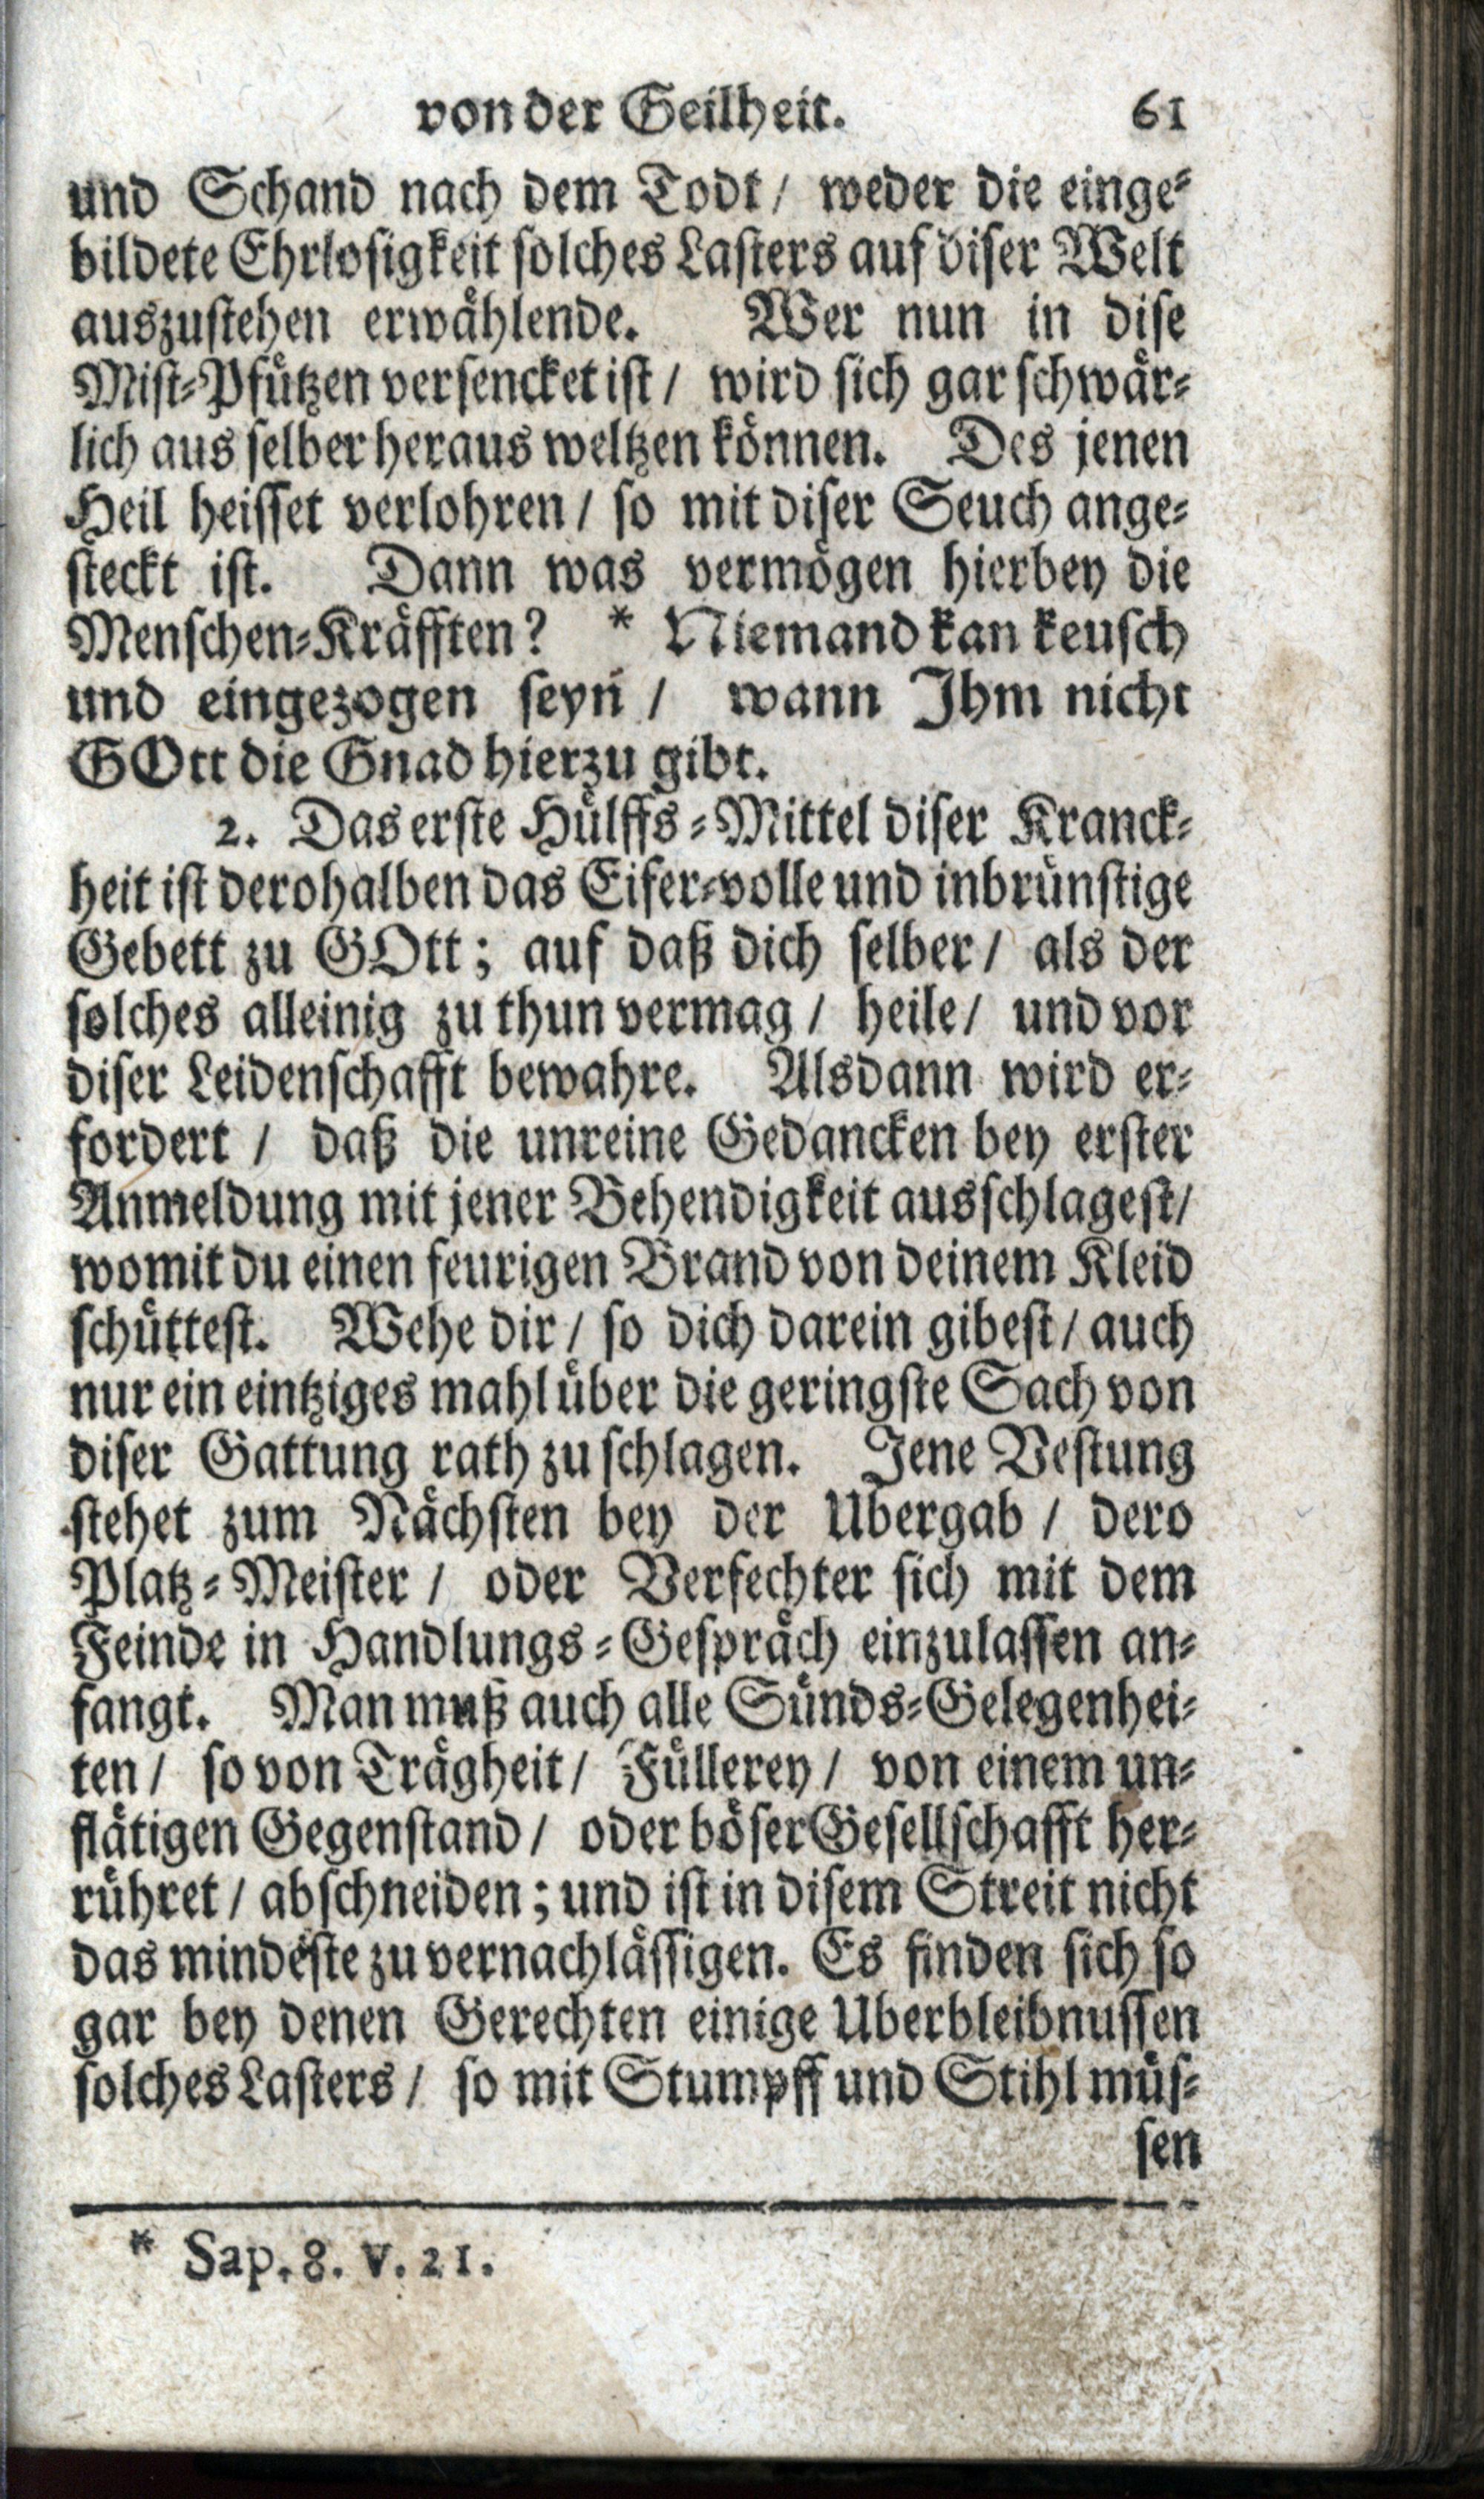 von der Geilheit. 61
und Schand nach dem Todt / weder die einge-
bildete Ehrlosigkeit solches Lasters auf diser Welt
auszustehen erwählende. Wer nun in dise
Mist-Pfützen versencket ist / wird sich gar schwär-
lich aus selber heraus weltzen können. Des jenen
Heil heisset verlohren / so mit diser Seuch ange-
steckt ist. Dann was vermögen hierbey die
Menschen-Kräfften? * Niemand kan keusch
und eingezogen seyn / wann Ihm nicht
GOtt die Gnad hierzu gibt.
2. Das erste Hülffs-Mittel diser Kranck-
heit ist derohalben das Eifer-volle und inbrünstige
Gebett zu GOtt; auf daß dich selber / als der
solches alleinig zu thun vermag / heile / und vor
diser Leidenschafft bewahre. Alsdann wird er-
fordert / daß die unreine Gedancken bey erster
Anmeldung mit jener Behendigkeit ausschlagest /
womit du einen feurigen Brand von deinem Kleid
schüttest. Wehe dir / so dich darein gibest / auch
nur ein eintziges mahl über die geringste Sach von
diser Gattung rath zu schlagen. Jene Vestung
stehet zum Nächsten bey der Ubergab / dero
Platz-Meister / oder Verfechter sich mit dem
Feinde in Handlungs-Gespräch einzulassen an-
fangt. Man muß auch alle Sünds-Gelegenhei-
ten / so von Trägheit / Füllerey / von einem un-
flätigen Gegenstand / oder böser Gesellschafft her-
rühret / abschneiden; und ist in disem Streit nicht
das mindeste zu vernachlässigen. Es finden sich so
gar bey denen Gerechten einige Uberbleibnussen
solches Lasters / so mit Stumpff und Stihl müs-
sen
* Sap. 8. v. 21.